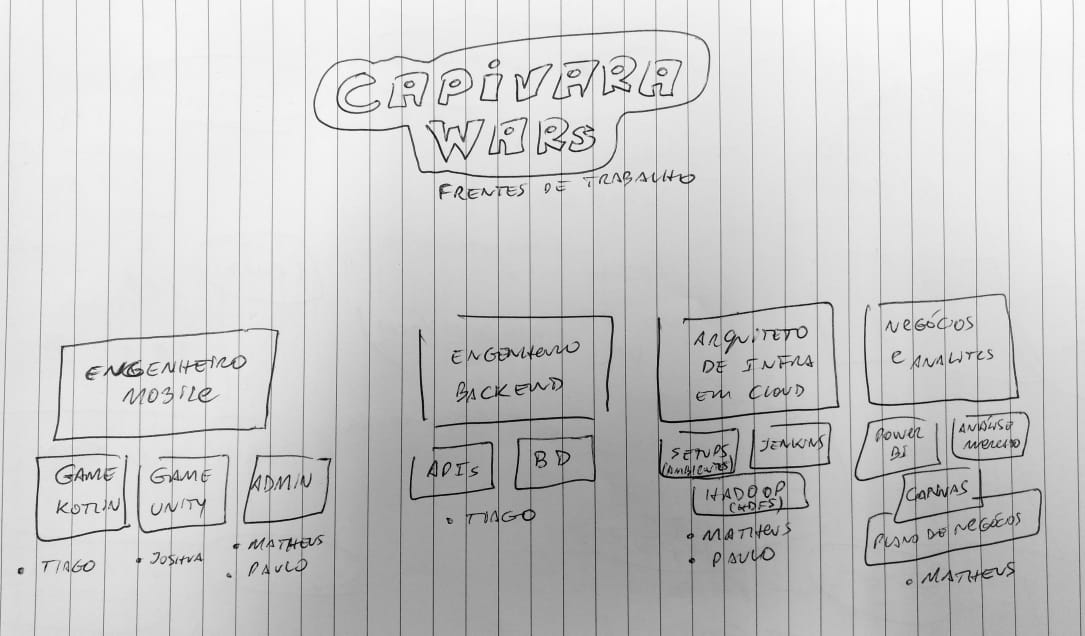 CAPIVARA
WARS
FRENTES DE TRABALHO
ENGENHEIRO
MOBILE
GAME
KOTLIN
GAME
UNITY
ADMIN
• TIAGO
• JOSHUA
• MATHEUS
• PAULO
ENGENHEIRO
BACKEND
APIs
BD
• TIAGO
ARQUITETO
DE INFRA
EM CLOUD
SETUPS
(AMBIENTES)
JENKINS
HADOOP
(HDFS)
• MATHEUS
• PAULO
NEGÓCIOS
e ANALITCS
POWER
BI
ANÁLISE
MERCADO
CANVAS
PLANO DE NEGÓCIOS
• MATHEUS